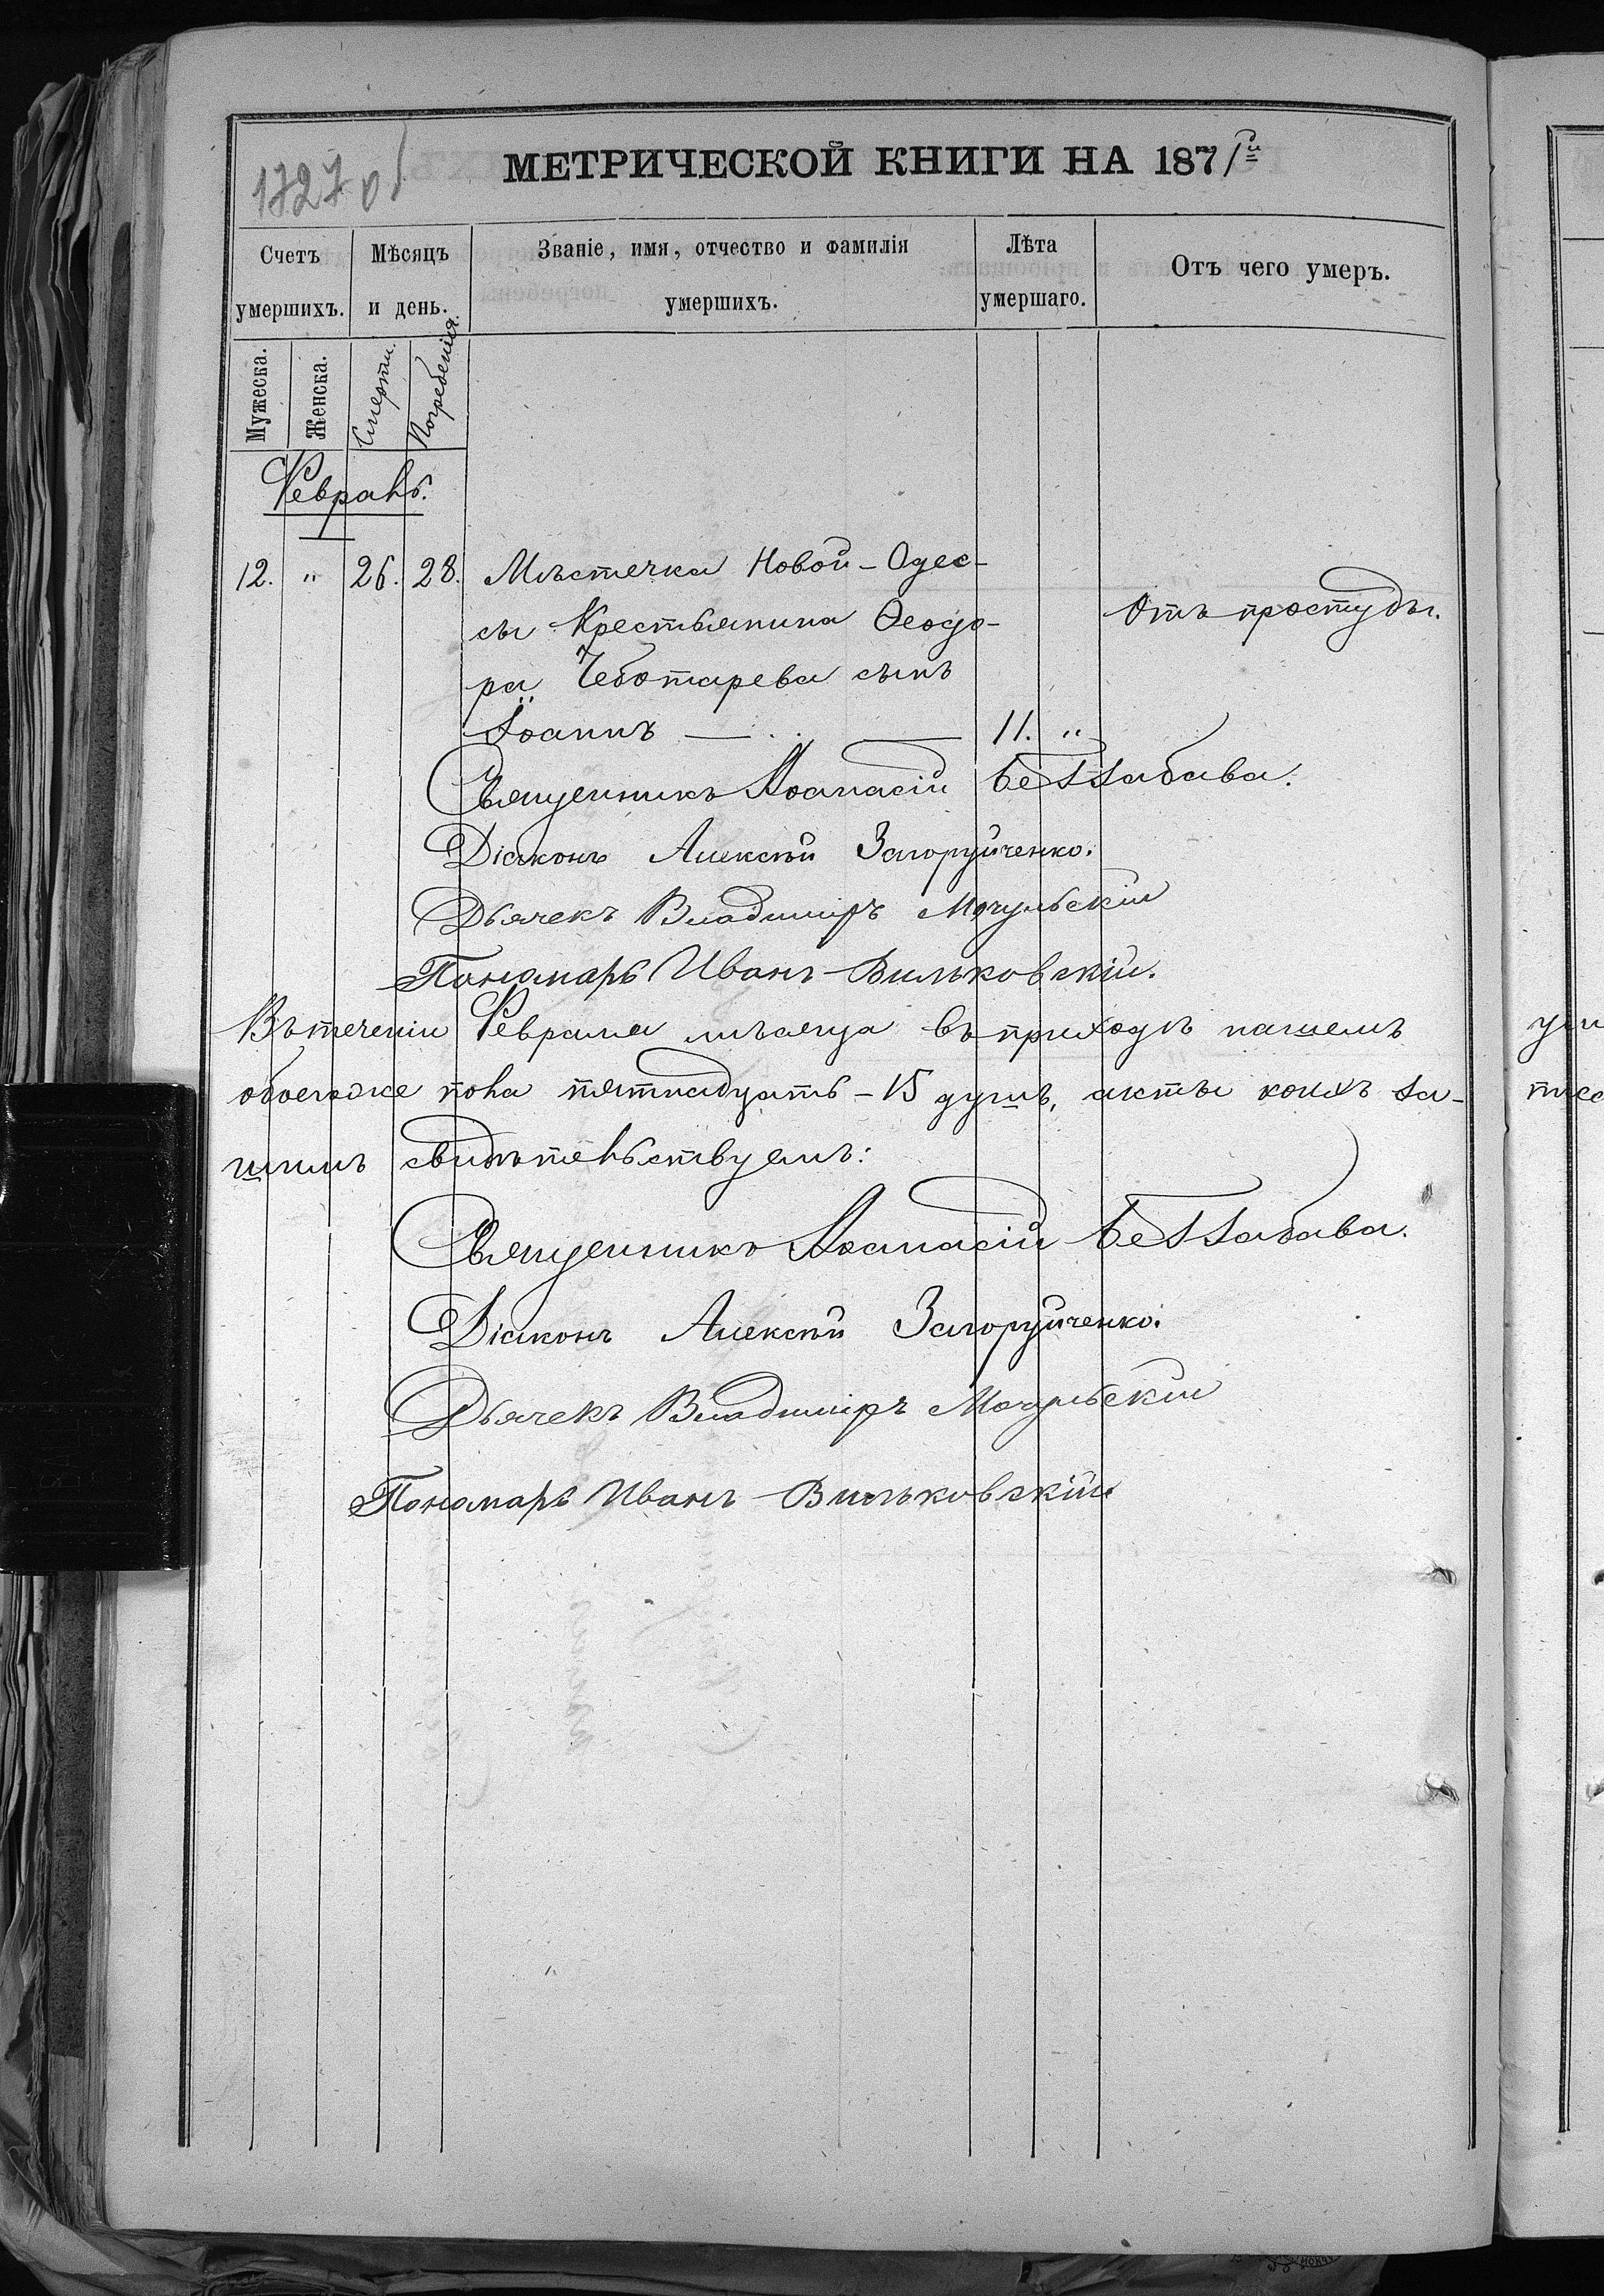 1727 об
МЕТРИЧЕСКОЙ КНИГИ НА 1871й
Счетъ умершихъ.
Мѣсяцъ и день.
Званіе, имя, отчество и фамилія умершихъ.
Лѣта умершаго.
Отъ чего умеръ.
Мужеска.
Женска.
Смерти.
Погребенія.
Февраль.
12. " 26. 28. Мѣстечка Новой-Одес-
сы Крестьянина Ѳеодо- Отъ простуды.
ра Чеботарева сынъ
Іоаннъ — — 11. "
Священникъ Аѳанасій Беззабава.
Діаконъ Алексѣй Загоруйченко.
Дьячекъ Владиміръ Мочульскій
Пономарь Иванъ Вильковскій.
Въ теченіи Февраля мѣсяца въ приходѣ нашемъ
обоегоже пола пятнадцать - 15 душъ, акты коихъ за-
шимъ свидѣтельствуемъ:
Священникъ Аѳанасій Беззабава.
Діаконъ Алексѣй Загоруйченко.
Дьячекъ Владиміръ Мочульскій
Пономарь Иванъ Вильковскій